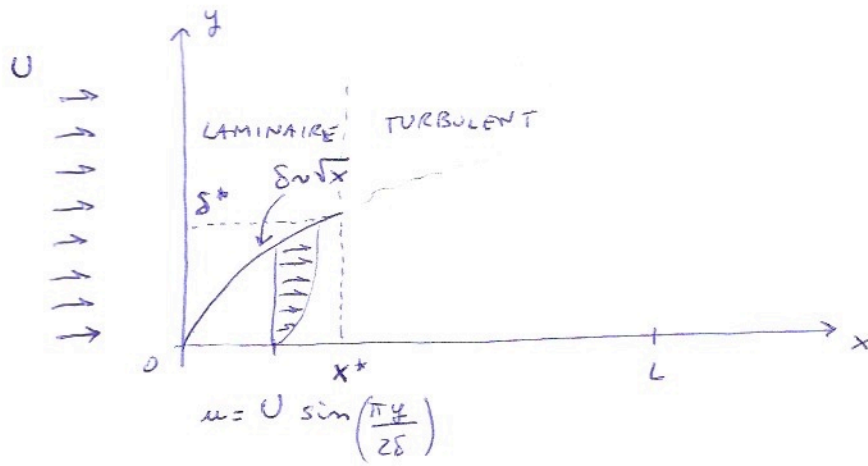 y
U
LAMINAIRE TURBULENT
δ~√x
δ*
0 x* L x
u = U sin(πy/2δ)